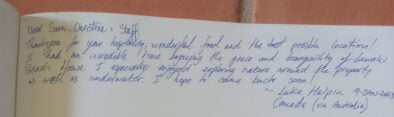 Dear Sam, Christine & Staff,
Thankyou for your hospitality, wonderful food and the best possible location!
I had an incredible time enjoying the peace and tranquility of
Beach House. I especially enjoyed exploring nature around the property
as well as underwater. I hope to come back soon!
~ Luke Halpin 9-Jan-2023
Canada (via Australia)